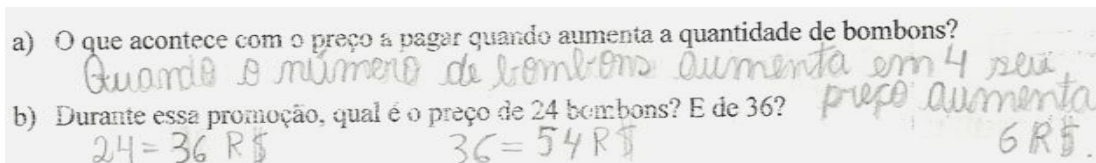 a) O que acontece com o preço a pagar quando aumenta a quantidade de bombons?
Quando o número de bombons aumenta em 4 seu
preço aumenta
6 R$.
b) Durante essa promoção, qual é o preço de 24 bombons? E de 36?
24 = 36 R$ 36 = 54 R$